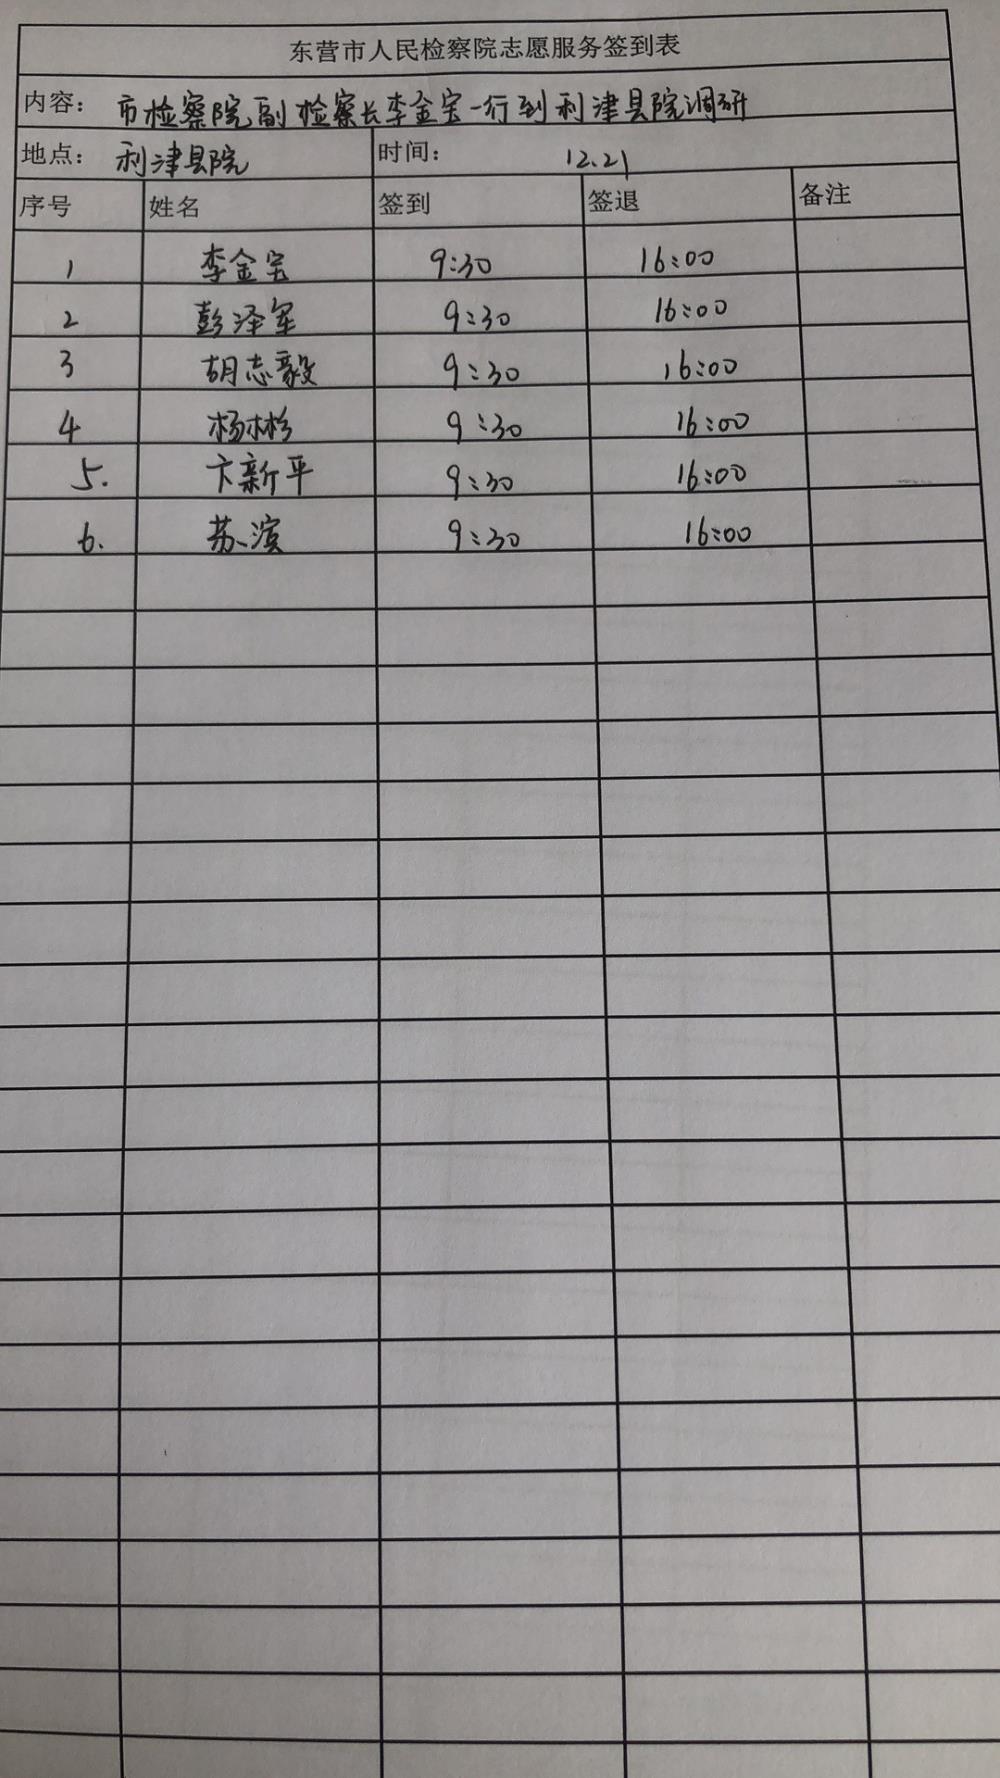 东营市人民检察院志愿服务签到表
内容： 市检察院副检察长李金宝一行到利津县院调研
地点： 利津县院 时间： 12.21
序号 姓名 签到 签退 备注
1 李金宝 9:30 16:00
2 彭泽军 9:30 16:00
3 胡志毅 9:30 16:00
4 杨彬彬 9:30 16:00
5. 卞新平 9:30 16:00
6. 苏滨 9:30 16:00